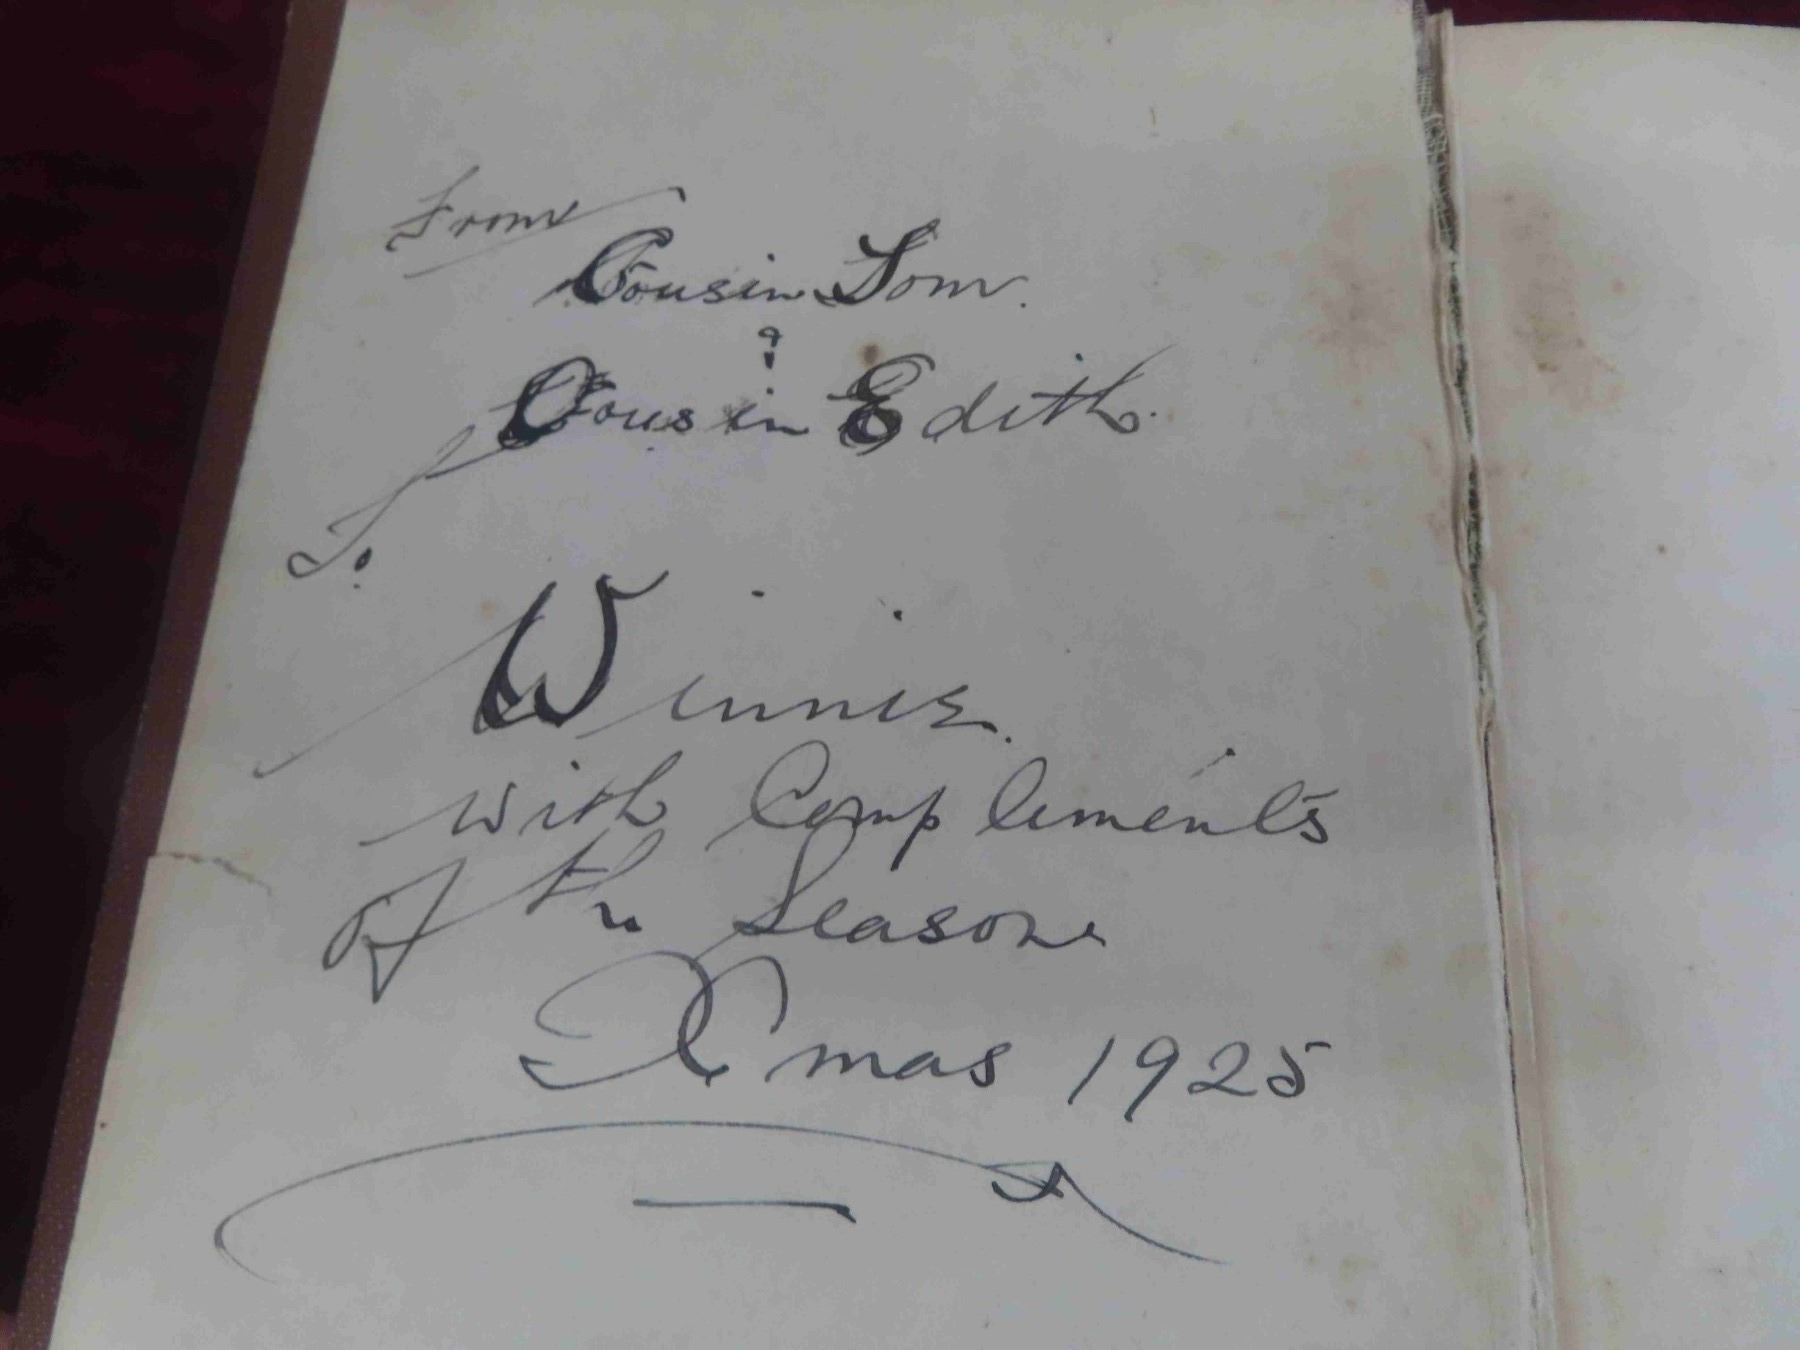 From
Cousin Tom.
&
Cousin Edith.
To
Winnie.
with Compliments
of the Season
Xmas 1925